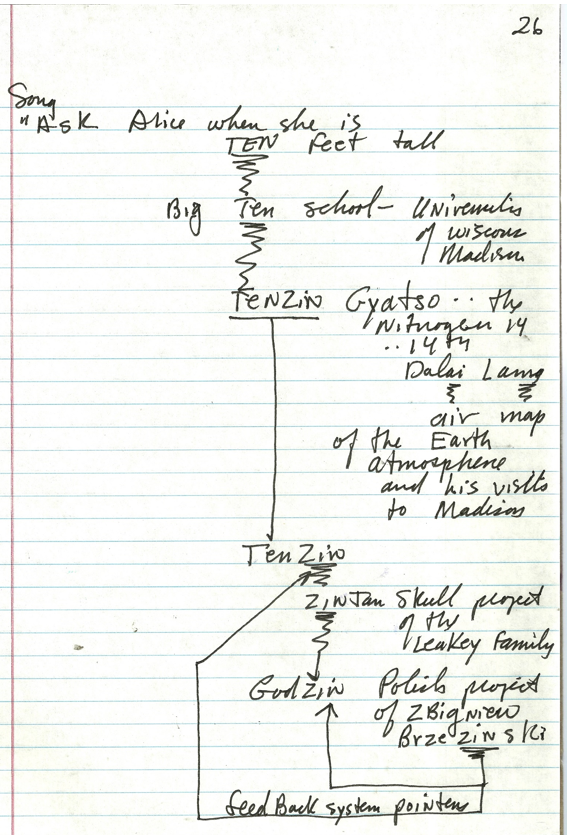 26
Song
"Ask Alice when she is
TEN feet tall
Big Ten school - Universities
of wiscons
Madison
TENZIN Gyatso .. the
Nitrogen 14
.. 14th
Dalai Lama
air map
of the Earth
atmosphere
and his visits
to Madison
TenZin
ZINJan Skull project
of the
Leakey family
GodZin Polish project
of ZBigniew
BrzeZINSki
feedBack system pointers